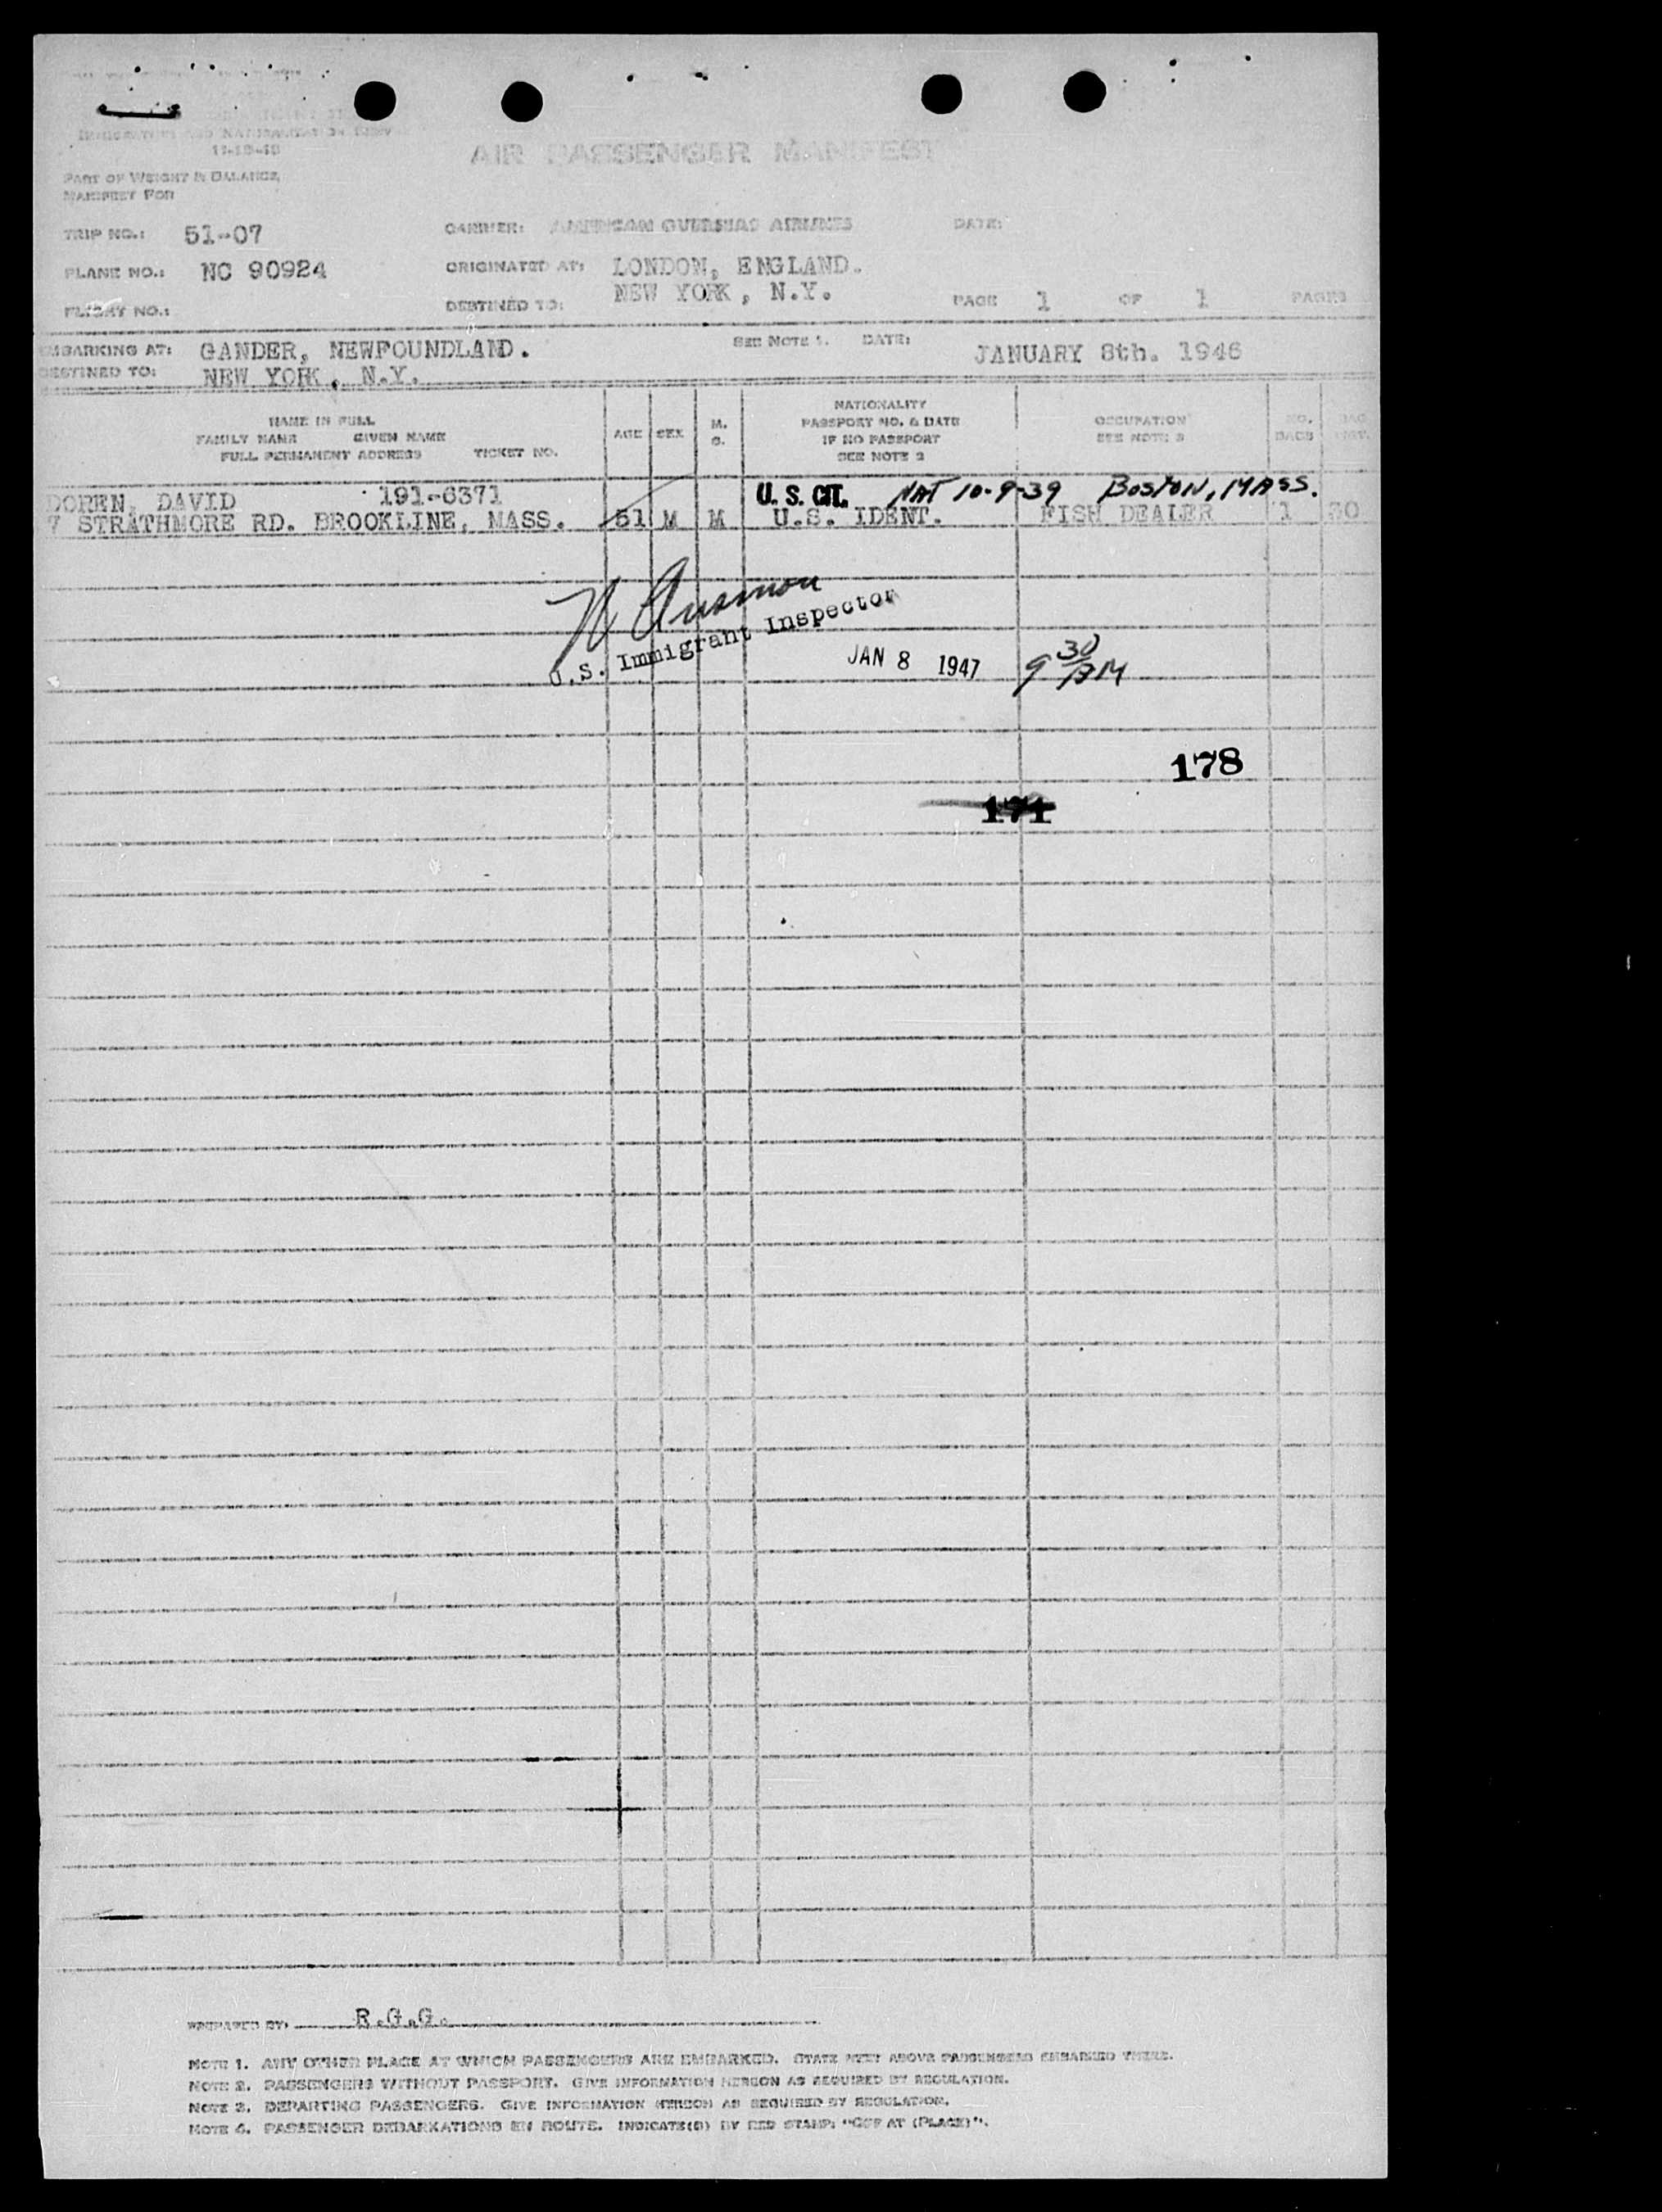 IMMIGRATION AND NATURALIZATION SERV
11-18-40
AIR PASSENGER MANIFEST
PART OF WEIGHT & BALANCE,
MANIFEST FOR
TRIP NO.: 51-07 CARRIER: AMERICAN OVERSEAS AIRLINES DATE:
PLANE NO.: NC 90924 ORIGINATED AT: LONDON, ENGLAND.
FLIGHT NO.: DESTINED TO: NEW YORK, N.Y. PAGE 1 OF 1 PAGES
EMBARKING AT: GANDER, NEWFOUNDLAND. SEE NOTE 1. DATE: JANUARY 8th. 1946
DESTINED TO: NEW YORK, N.Y.
NAME IN FULL
FAMILY NAME GIVEN NAME
FULL PERMANENT ADDRESS TICKET NO.
AGE
SEX
M.
S.
NATIONALITY
PASSPORT NO. & DATE
IF NO PASSPORT
SEE NOTE 2
OCCUPATION
SEE NOTE 3
NO.
BAGS
BAG
WGT.
DOREN, DAVID 191-6371 U.S. CIT. NAT 10-9-39 BOSTON, MASS.
7 STRATHMORE RD. BROOKLINE, MASS. 51 M M U.S. IDENT. FISH DEALER 1 30
U.S. Immigrant Inspector
JAN 8 1947 9 30
178
171
PREPARED BY: R.G.G.
NOTE 1. ANY OTHER PLACE AT WHICH PASSENGERS ARE EMBARKED. STATE NEXT ABOVE PASSENGERS EMBARKED THERE.
NOTE 2. PASSENGERS WITHOUT PASSPORT. GIVE INFORMATION HEREON AS REQUIRED BY REGULATION.
NOTE 3. DEPARTING PASSENGERS. GIVE INFORMATION HEREON AS REQUIRED BY REGULATION.
NOTE 4. PASSENGER DEBARKATIONS EN ROUTE. INDICATE(D) BY RED STAMP: "OFF AT (PLACE)".